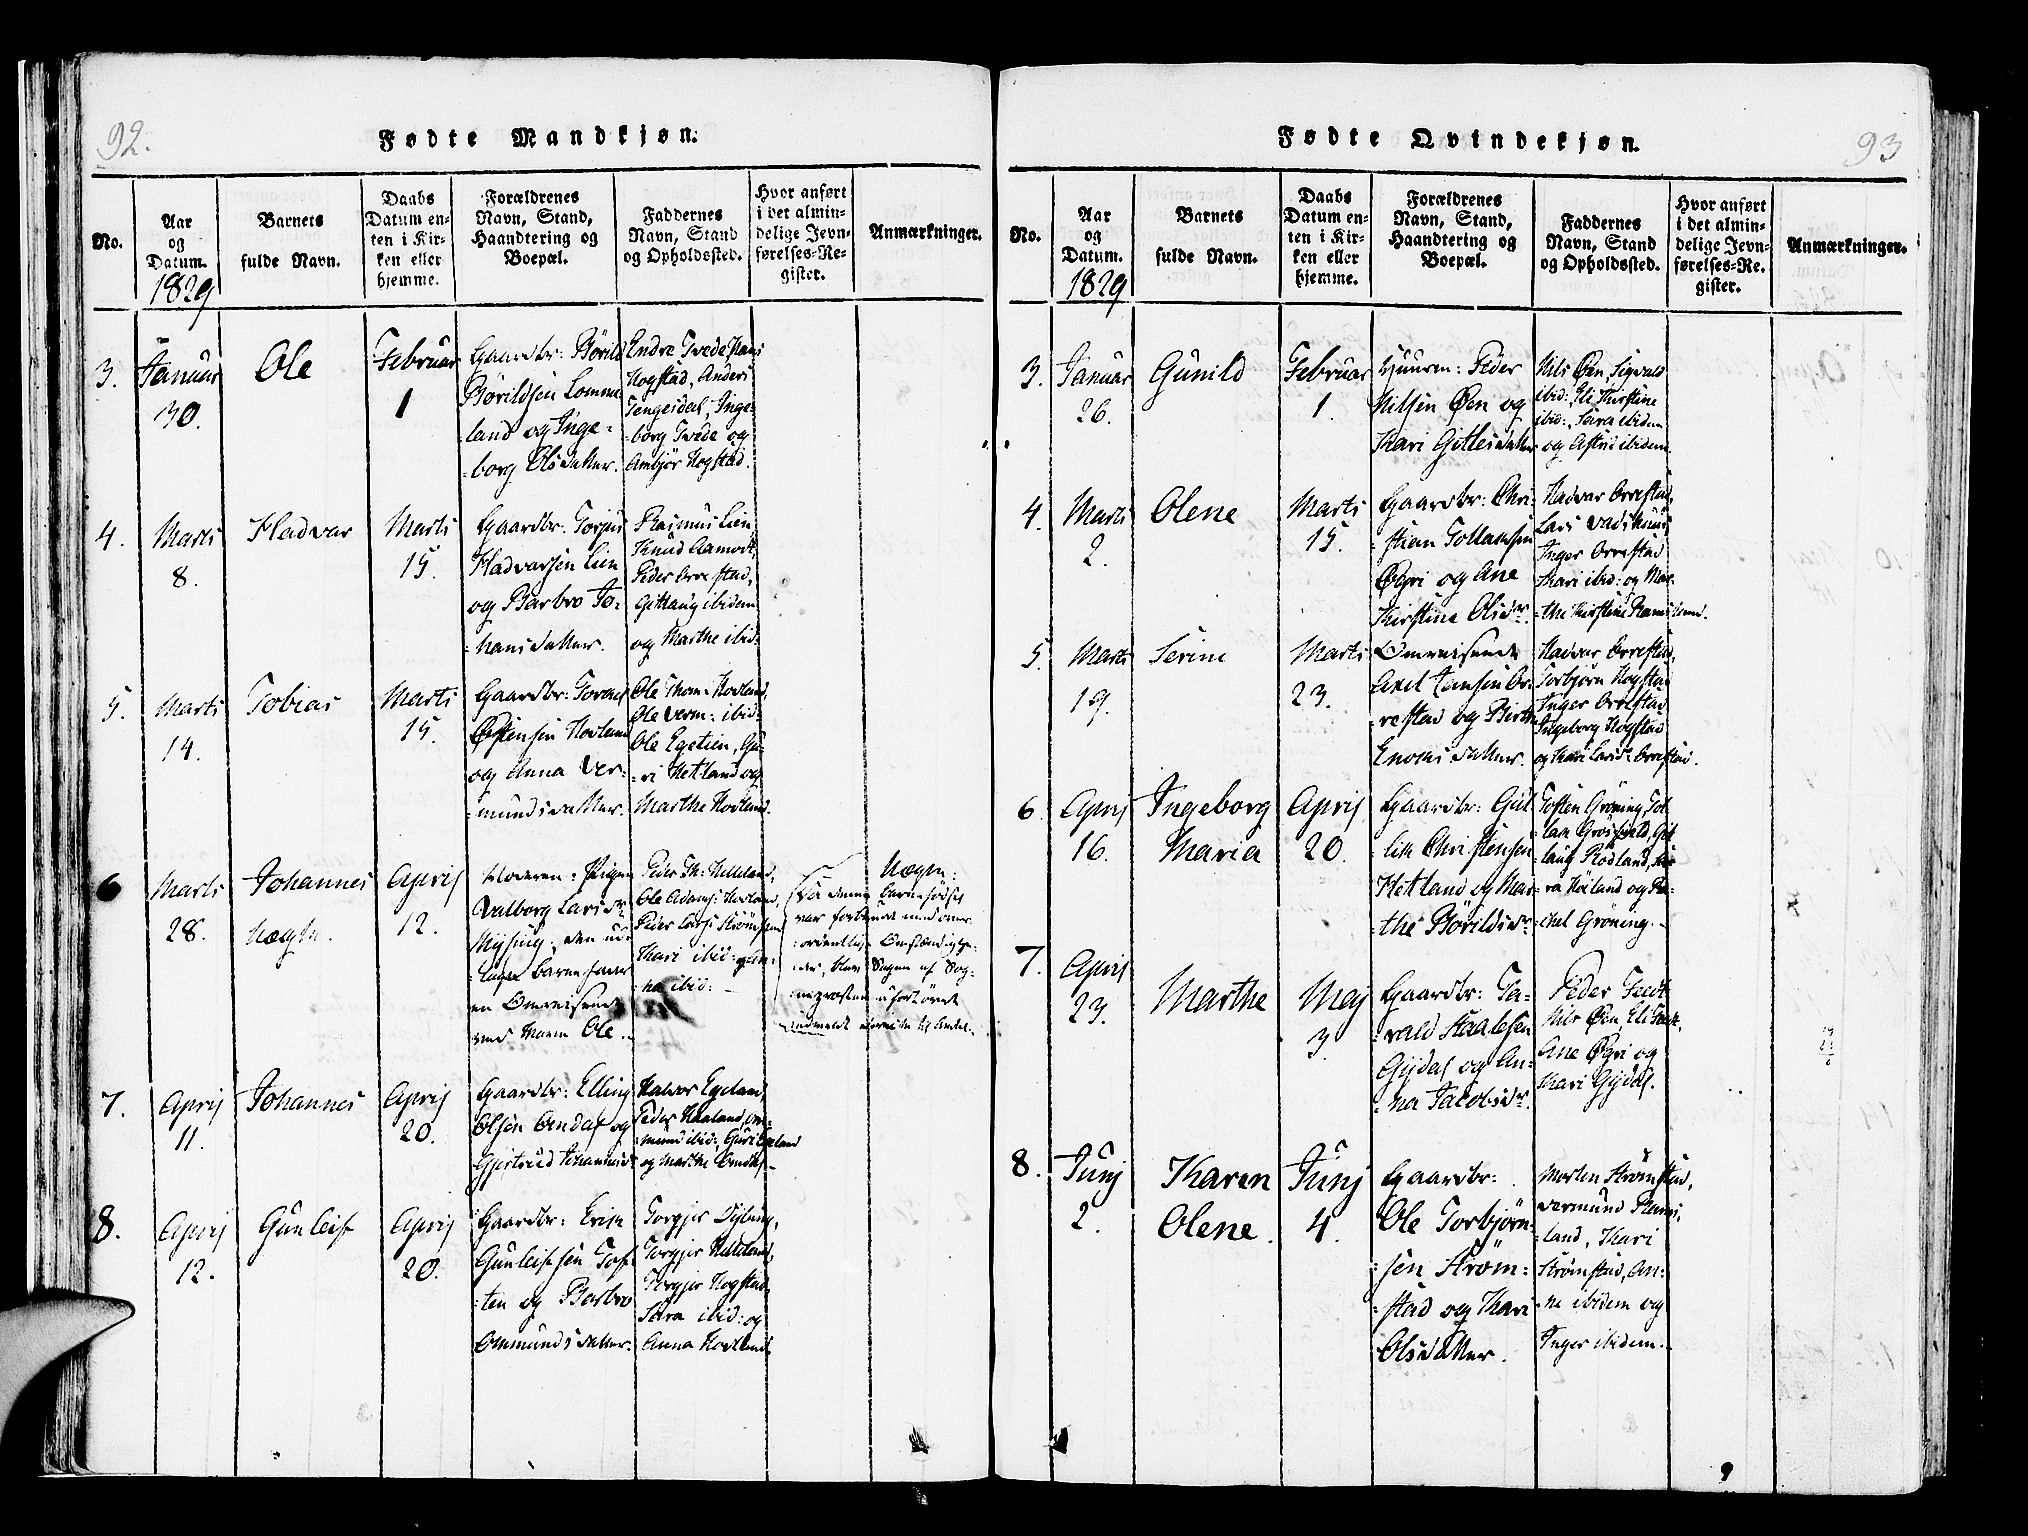 92.
Fødte Mandkjøn.
No.
Aar
og
Datum.
1829
Barnets
fulde Navn.
Daabs
Datum en-
ten i Kir-
ken eller
hjemme.
Forældrenes
Navn, Stand,
Haandtering og
Boepæl.
Faddernes
Navn, Stand
og Opholdssted.
Hvor anført
i det almin-
delige Jevn-
førelses-Re-
gister.
Anmærkninger.
3.
Januar
30.
Ole
Februar
1
Gaardbr: Børild
Børildsen Lomme-
-land og Inge-
-borg Olsdatter.
Endre Tvede, Hans
Hogstad, Anders
Tengesdal, Inge-
-borg Tvede og
Anbjør Hogstad.
4.
Marts
8.
Hadvar
Marts
15.
Gaardbr: Torjus
Hadvarsen Lien
og Barbro Jo-
-hansdatter.
Rasmus Lien,
Knud Aamodt,
Peder Orrestad,
Gitlaug ibidem
og Marthe ibid:
5.
Marts
14.
Tobias
Marts
15.
Gaardbr:
Østensen Hovland
og Anna Ver-
-mundsdatter.
Ole Thom: Hovland,
Ole Verm: ibid:
Ole Egelien, Gu-
-ri Hetland og
Marthe Hovland.
6
Marts
28.
Johannes
uægte.
Aprij
12.
Moderen: Pigen
Valborg Larsdr.
Mysing, den ud-
-lagte Barnefader
en Omreisende
ved Navn Ole.
Peder Th: Helleland,
Ole Adams: Hovland,
Peder Lars: Strømstad
Kari ibid: og An-
-na ibid:
Uægte.
Da denne Barnefødsel
var forbundet med over-
-ordentlige Omstændighe-
-der, blev Sagen af Sog-
-nepræsten
indmeldt
7.
Aprij
11.
Johannes
Aprij
20.
Gaardbr: Elling
Olsen Omdal og
Gjertrud Johannesdr
Halvor Egeland,
Peder Haaland, Ver-
-mund ibid:, Guri Egeland
og Marthe Omdal.
8.
Aprij
12.
Gunleif
Aprij
20.
Gaardbr: Erik
Gunleifsen Tof-
-ten og Barbro
Ommundsdatter.
Torgjer
Torgjer Helleland,
Torgjer Hogstad,
Sara ibid: og
Anna Hovland
93
Fødte Qvindekjøn.
No.
Aar
og
Datum.
1829
Barnets
fulde Navn.
Daabs
Datum en-
ten i Kir-
ken eller
hjemme.
Forældrenes
Navn, Stand,
Haandtering og
Boepæl.
Faddernes
Navn, Stand
og Opholdssted.
Hvor anført
i det almin-
delige Jevn-
førelses-Re-
gister.
Anmærkninger.
3.
Januar
26.
Gunild
Februar
1.
Huusm: Peder
Nilsen Øen og
Kari Gitlesdatter
Nils Øen, Sigvald
ibid:, Eli Kirstine
ibid:, Sara ibidem
og Astri ibidem.
4.
Marts
2.
Olene
Marts
15.
Gaardbr: Chri-
-stian Tollamsen
Øgri og Ane
Kirstine Olsdr.
Hadvar Orrestad,
Lars
Inger Orrestad
Kari ibid: og Mar-
-the Kirstine Ramsland.
5.
Marts
19.
Serine
Marts
23.
Omreisende
Axel Jansen Or-
-restad og Birthe
Enochsdatter.
Hadvar Orrestad,
Torbjørn Hogstad
Inger Orrestad
Ingeborg Hogstad
og Kari Larsdr Orrestad.
6
Aprij
16.
Ingeborg
Maria
Aprij
20.
Gaardbr: Gul-
lik Christensen
Hetland og Mar-
-the Børildsdr.
Tosten Grøning, Tol-
-lak Grøsfield, Git-
laug Rodland,
Høiland og Ra-
-chel Grøning.
7.
Aprij
23.
Marthe
Maj
3.
Gaardbr: Ta-
rald Staalesen
Gyjdal og An-
-na Jacobsdr.
Peder Feedt
Nils Øen, Eli
Ane Øgri og
Kari Gyjdal.
8.
Junj
2.
Karen
Olene.
Junj
4.
Gaardbr:
Ole Torbjørn-
-sen Strøm-
-stad og Kari
Olsdatter.
Morten Strømstad,
Vermund Rams-
-land, Kari
Strømstad, An-
-ne ibidem og
Inger ibidem.